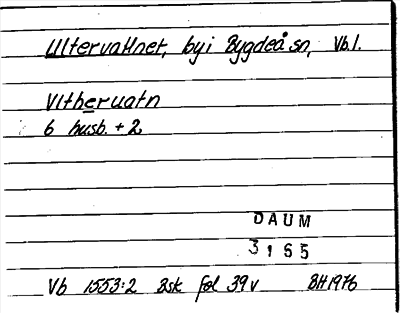 Ultervattnet, by i Bygdeå sn, Vb.l.
Vltheruatn
6 husb. + 2
DAUM
3165
Vb 1553:2 Bsk fol 39 v BH 1976